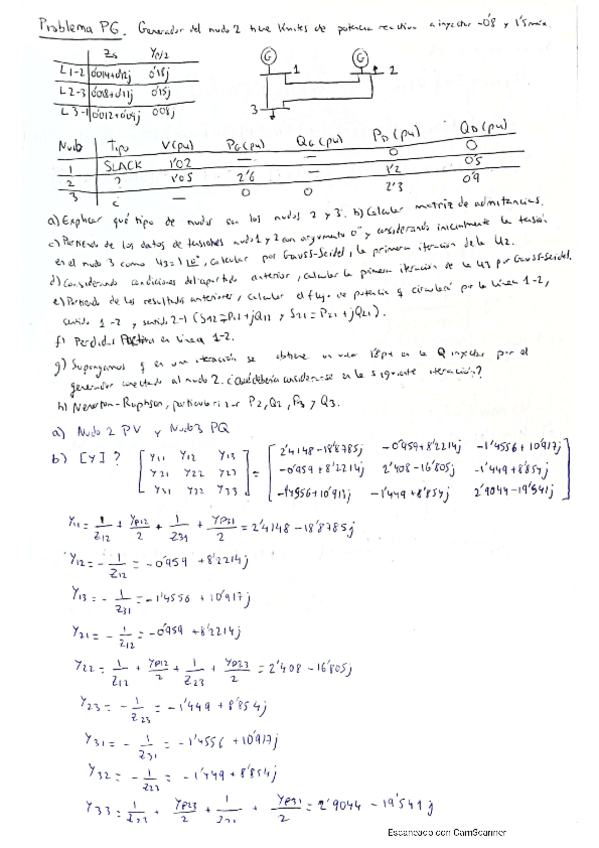 Problema PG. Generador del nudo 2 tiene límites de potencia reactiva a inyectar -0'8 y 1'5 máx.
Zs Yp/2
L1-2 0'014+0'12j 0'15j
L2-3 0'08+0'11j 0'15j
L3-1 0'012+0'09j 0'08j
G G
1 2
3
Nudo Tipo V(pu) PG(pu) QG(pu) PD(pu) QD(pu)
1 SLACK 1'02 — — 0 0
2 ? 1'05 2'6 — 1'2 0'5
3 ¿ — 0 0 2'3 0'9
a) Explicar qué tipo de nudos son los nudos 2 y 3. b) Calcular matriz de admitancias.
c) Partiendo de los datos de tensiones nudo 1 y 2 con argumento 0º y considerando inicialmente la tensión
en el nudo 3 como U3=1|0º, calcular por Gauss-Seidel, la primera iteración de la U2.
d) Considerando condiciones del apartado anterior, calcular la primera iteración de la U3 por Gauss-Seidel.
e) Partiendo de los resultados anteriores, calcular el flujo de potencia q circulará por la línea 1-2,
sentido 1-2 y sentido 2-1 (S12=P12+jQ12 y S21=P21+jQ21).
f) Perdidas en línea 1-2.
g) Supongamos q en una iteración se obtiene un valor en la Q inyectar por el
generador conectado al nudo 2. ¿Qué debería considerarse en la siguiente iteración?
h) Newton-Raphson, particularizar P2, Q2, P3 y Q3.
a) Nudo 2 PV y Nudo 3 PQ
b) [Y] ? [Y11 Y12 Y13 = [2'4148-18'8785j -0'959+8'2214j -1'4556+10'917j
Y21 Y22 Y23 -0'959+8'2214j 2'408-16'805j -1'449+8'854j
Y31 Y32 Y33] -1'4556+10'917j -1'449+8'854j 2'9044-19'541j]
Y11 = 1/Z12 + YP12/2 + 1/Z31 + YP31/2 = 2'4148-18'8785j
Y12 = - 1/Z12 = -0'959 +8'2214j
Y13 = - 1/Z31 = -1'4556 + 10'917j
Y21 = - 1/Z12 = -0'959 +8'2214j
Y22 = 1/Z12 + YP12/2 + 1/Z23 + YP23/2 = 2'408 -16'805j
Y23 = - 1/Z23 = -1'449 + 8'854j
Y31 = - 1/Z31 = -1'4556 +10'917j
Y32 = - 1/Z23 = -1'449 +8'854j
Y33 = 1/Z23 + YP23/2 + 1/Z31 + YP31/2 = 2'9044 -19'541j
Escaneado con CamScanner